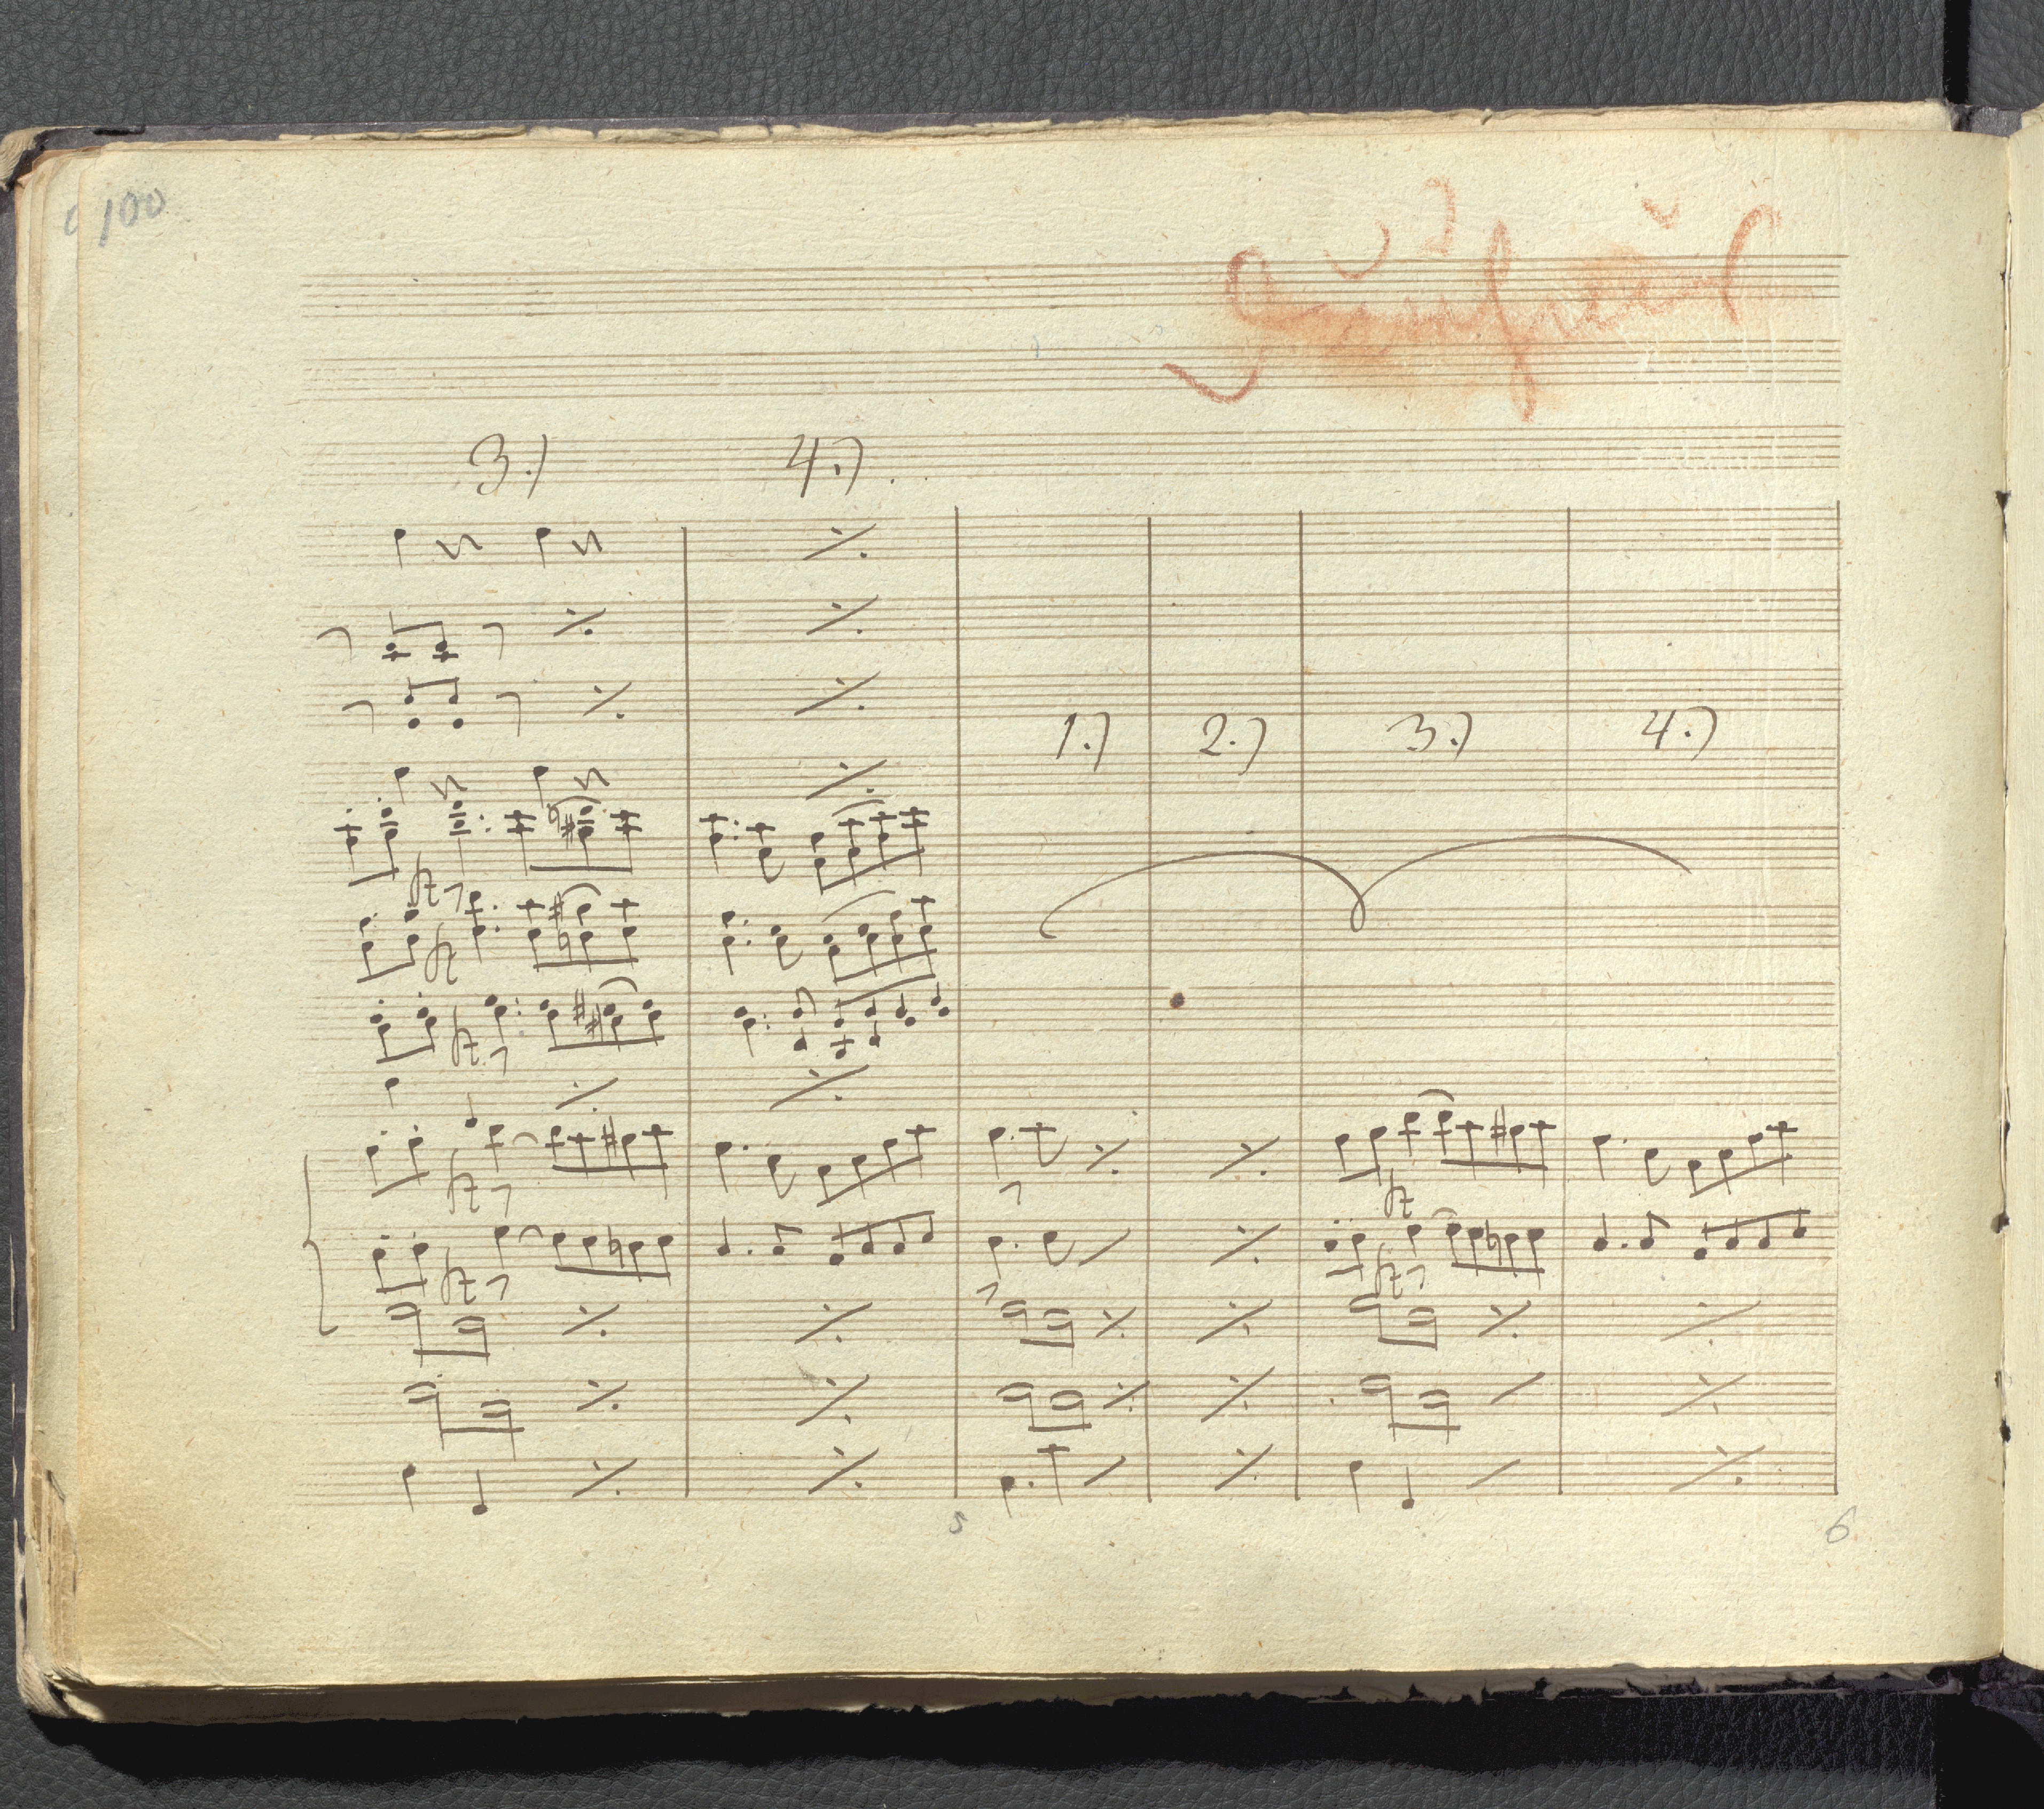 100
3.) 4.)
1.) 2.) 3.) 4.)
5 6